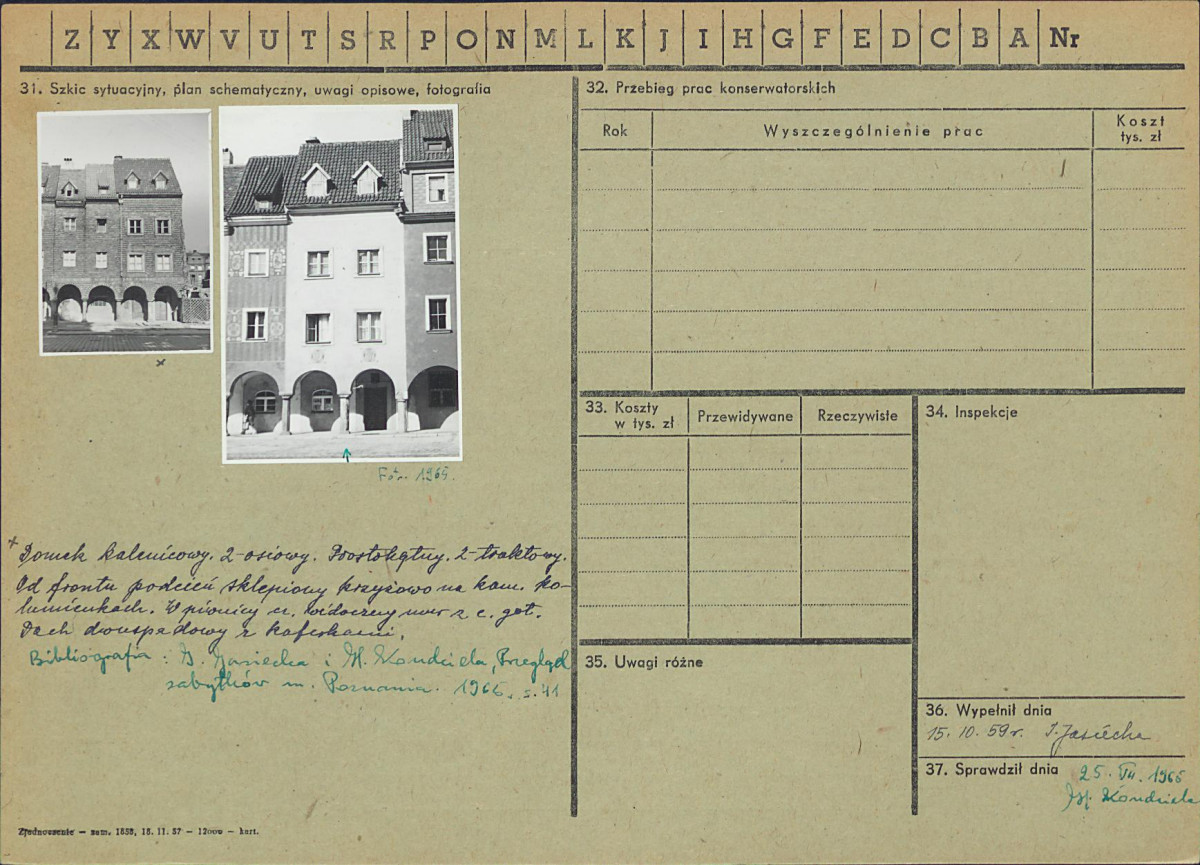 Z Y X W V U T S R P O N M L K J I H G F E D C B A Nr
31. Szkic sytuacyjny, plan schematyczny, uwagi opisowe, fotografia
Fot. 1965.
x Domek kalenicowy. 2-osiowy. Prostokątny. 2-traktowy.
Od frontu podcień sklepiony krzyżowo na kam. ko-
lumienkach. W piwnicy widoczny mur z c. got.
Dach dwuspadowy z kaferkami.
Bibliografia: I. Jasiecka i H. Kondziela, Przegląd
zabytków m. Poznania. 1965, s. 41
Zjednoczenie — zam. 1858, 15. 11. 57 — 12000 — kart.
32. Przebieg prac konserwatorskich
Rok
Wyszczególnienie prac
Koszt
tys. zł
33. Koszty
w tys. zł
Przewidywane
Rzeczywiste
34. Inspekcje
35. Uwagi różne
36. Wypełnił dnia
15. 10. 59 r. I. Jasiecka
37. Sprawdził dnia
25. VII. 1965
H. Kondziela